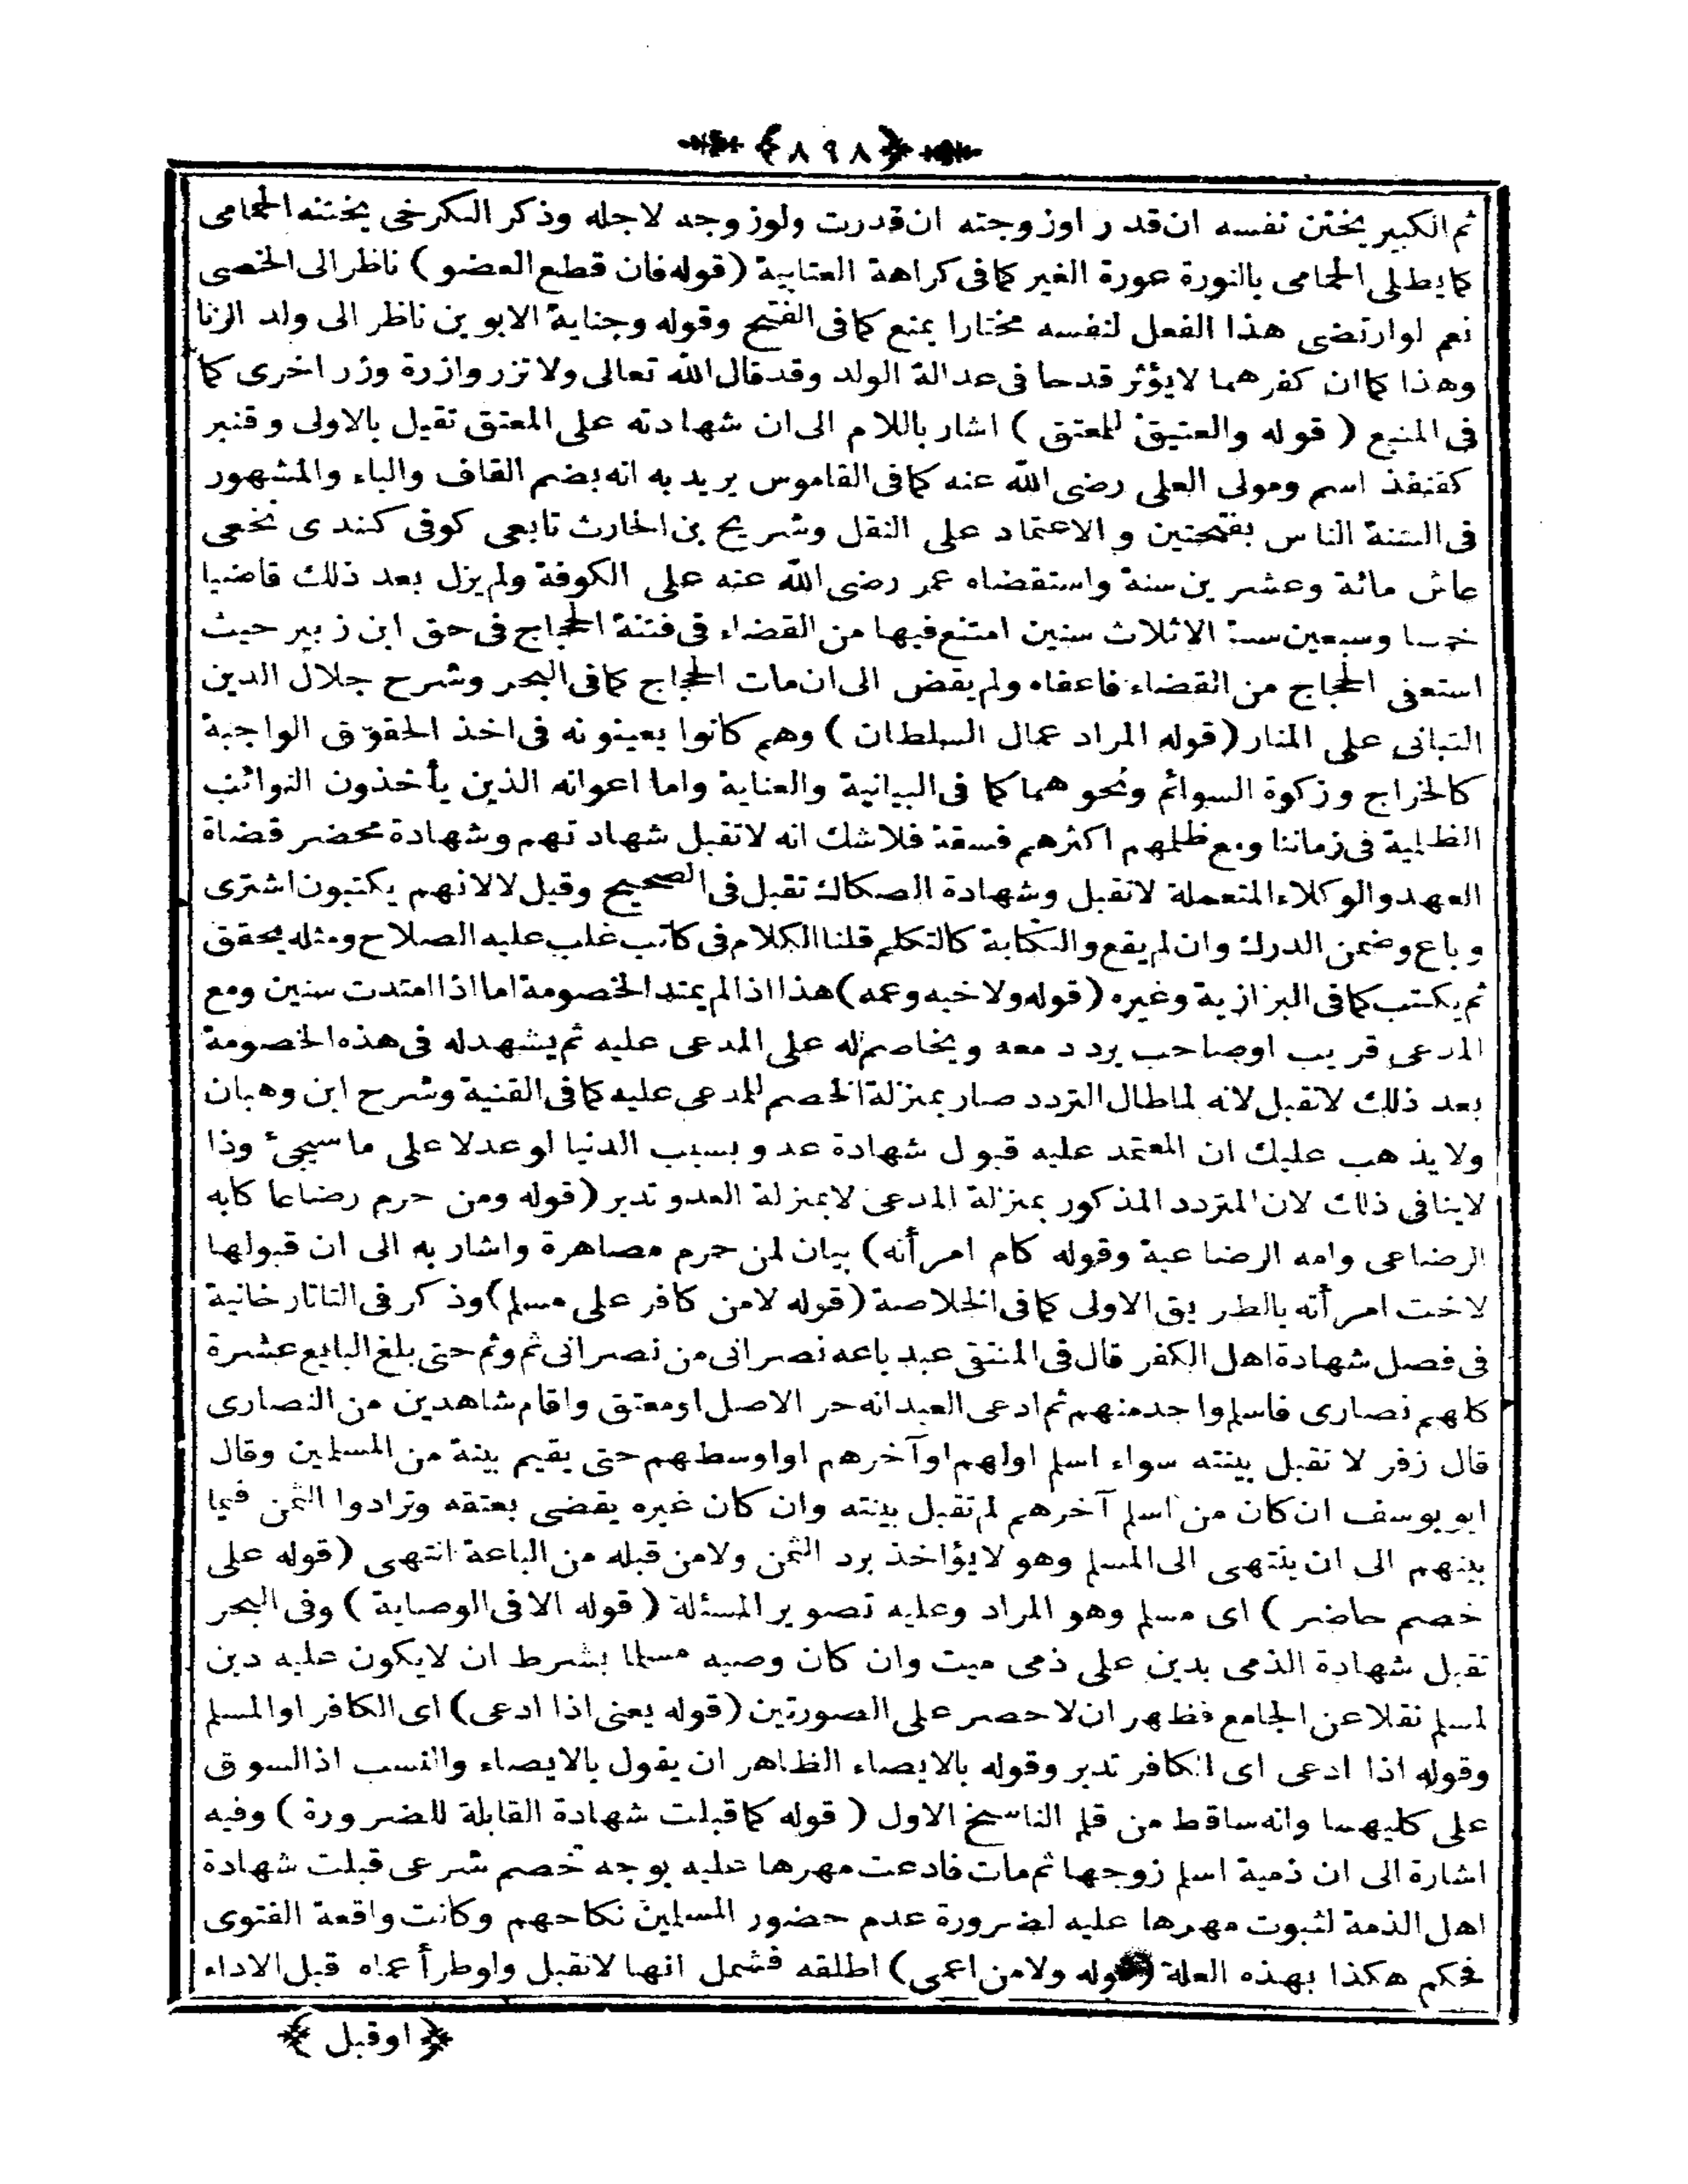 ﴿٨٩٨﴾
ثم الكبير يختن نفسه ان قدر او زوجته ان قدرت ولو زوجه لاجله وذكر الكرخى يختنه الحمامى
كما يطلى الحمامى بالنورة عورة الغير كما فى كراهة العتابية (قوله فان قطع العضو) ناظر الى الخصى
نعم لو ارتضى هذا الفعل لنفسه مختارا يمنع كما فى الفتح وقوله وجناية الابوين ناظر الى ولد الزنا
وهذا كما ان كفرهما لا يؤثر قدحا فى عدالة الولد وقد قال الله تعالى ولا تزر وازرة وزر اخرى كما
فى المنبع (قوله والعتيق للمعتق) اشار باللام الى ان شهادته على المعتق تقبل بالاولى وقنبر
كقنفذ اسم ومولى العلى رضى الله عنه كما فى القاموس يريد به انه بضم القاف والباء والمشهور
فى السنة الناس بفتحتين والاعتماد على النقل وشريح بن الحارث تابعى كوفى كندى نخعى
عاش مائة وعشرين سنة واستقضاه عمر رضى الله عنه على الكوفة ولم يزل بعد ذلك قاضيا
خمسا وسبعين سنة الا ثلاث سنين امتنع فيها من القضاء فى فتنة الحجاج فى حق ابن زبير حيث
استعفى الحجاج من القضاء فاعفاه ولم يقض الى ان مات الحجاج كما فى البحر وشرح جلال الدين
التبانى على المنار (قوله المراد عمال السلطان) وهم كانوا يعينونه فى اخذ الحقوق الواجبة
كالخراج وزكوة السوائم ونحوهما كما فى البيانية والعناية واما اعوانه الذين يأخذون النوائب
الظلية فى زماننا ومع ظلمهم اكثرهم فسقة فلا شك انه لا تقبل شهادتهم وشهادة محضر قضاة
العهد والوكلاء المتعملة لا تقبل وشهادة الصكاك تقبل فى الصحيح وقيل لا لانهم يكتبون اشترى
وباع وضمن الدرك وان لم يقع والكتابة كالتكلم قلنا الكلام فى كاتب غلب عليه الصلاح ومثله يحقق
ثم يكتب كما فى البزازية وغيره (قوله ولاخيه وعمه) هذا اذا لم يمتد الخصومة اما اذا امتدت سنين ومع
المدعى قريب او صاحب يردد معه ويخاصم له على المدعى عليه ثم يشهد له فى هذه الخصومة
بعد ذلك لا تقبل لانه لما طال التردد صار بمنزلة الخصم للمدعى عليه كما فى القنية وشرح ابن وهبان
ولا يذهب عليك ان المعتمد عليه قبول شهادة عدو بسبب الدنيا لو عدلا على ما سيجئ وذا
لا ينافى ذلك لان المتردد المذكور بمنزلة المدعى لا بمنزلة العدو تدبر (قوله ومن حرم رضاعا كابه
الرضاعى وامه الرضاعية وقوله كام امرأته) بيان لمن حرم مصاهرة واشار به الى ان قبولها
لاخت امرأته بالطريق الاولى كما فى الخلاصة (قوله لا من كافر على مسلم) وذكر فى التاتارخانية
فى فصل شهادة اهل الكفر قال فى المنتقى عبد باعه نصرانى من نصرانى ثم وثم حتى بلغ البايع عشرة
كلهم نصارى فاسلم واحد منهم ثم ادعى العبد انه حر الاصل او معتق واقام شاهدين من النصارى
قال زفر لا تقبل بينته سواء اسلم اولهم او آخرهم او اوسطهم حتى يقيم بينة من المسلمين وقال
ابو يوسف ان كان من اسلم آخرهم لم تقبل بينته وان كان غيره يقضى بعتقه وترادوا الثمن فيما
بينهم الى ان ينتهى الى المسلم وهو لا يؤاخذ برد الثمن ولا من قبله من الباعة انتهى (قوله على
خصم حاضر) اى مسلم وهو المراد وعليه تصوير المسئلة (قوله الا فى الوصاية) وفى البحر
تقبل شهادة الذمى بدين على ذمى ميت وان كان وصيه مسلما بشرط ان لا يكون عليه دين
لمسلم نقلا عن الجامع فظهر ان لا حصر على الصورتين (قوله يعنى اذا ادعى) اى الكافر او المسلم
وقوله اذا ادعى اى الكافر تدبر وقوله بالايصاء الظاهر ان يقول بالايصاء والنسب اذ السوق
على كليهما وانه ساقط من قلم الناسخ الاول (قوله كما قبلت شهادة القابلة للضرورة) وفيه
اشارة الى ان ذمية اسلم زوجها ثم مات فادعت مهرها عليه بوجه خصم شرعى قبلت شهادة
اهل الذمة لثبوت مهرها عليه لضرورة عدم حضور المسلمين نكاحهم وكانت واقعة الفتوى
فحكم هكذا بهذه العلة (قوله ولا من اعمى) اطلقه فشمل انها لا تقبل ولو طرأ عماه قبل الاداء
﴿او قبل﴾